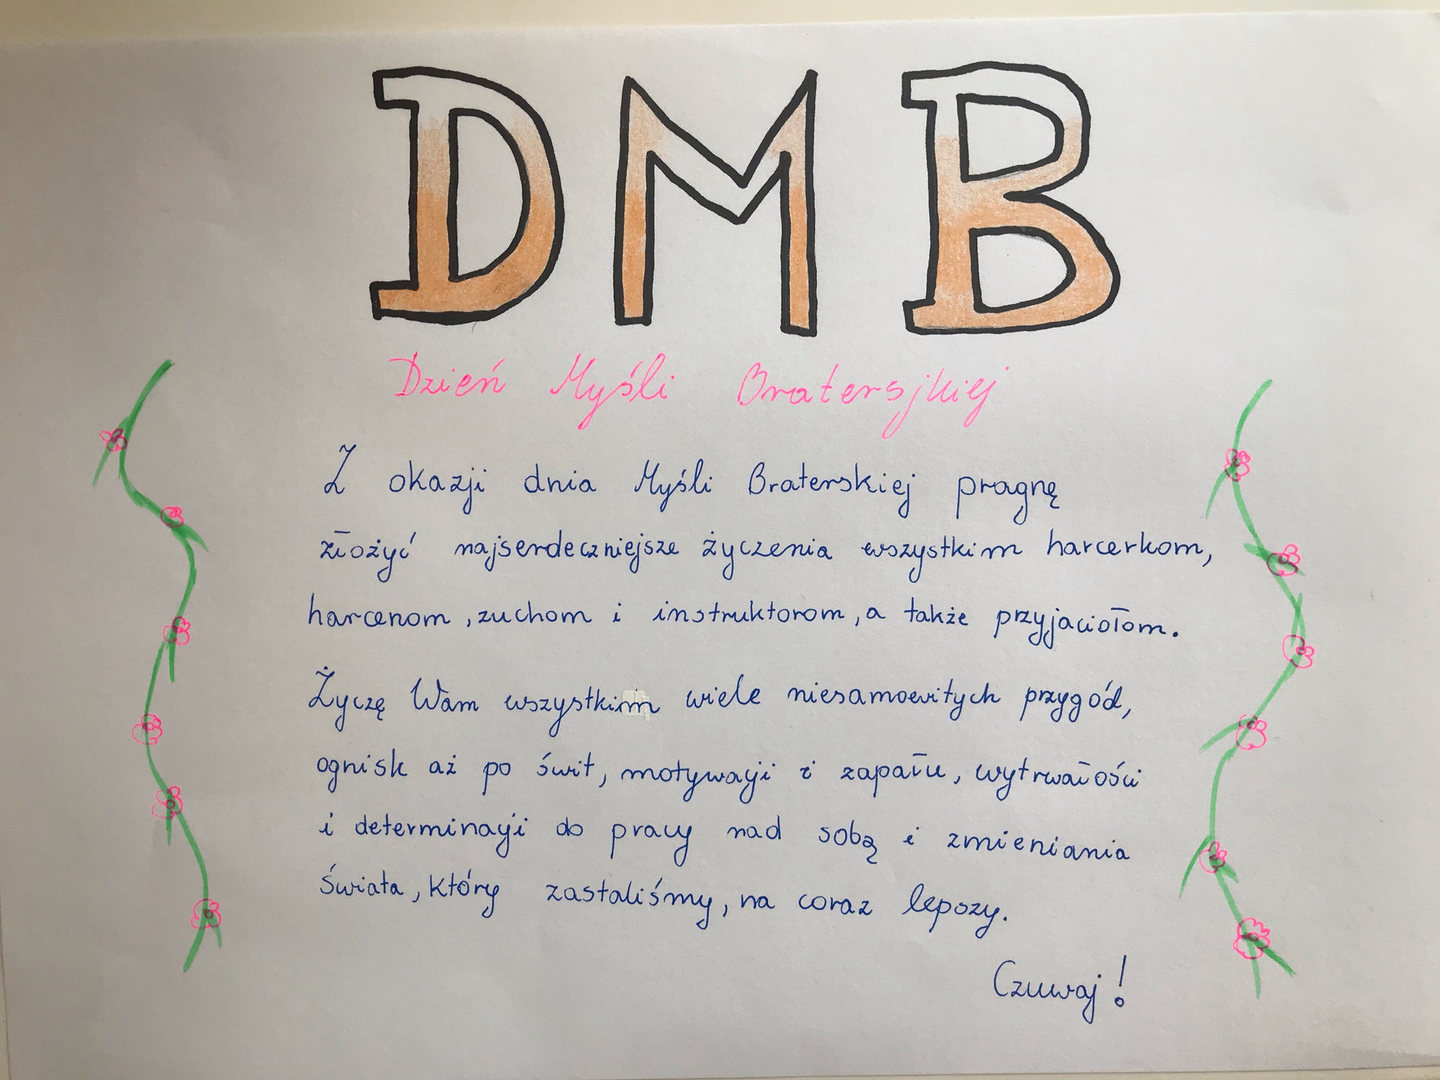 DMB
Dzień Myśli Bratersjkiej
Z okazji dnia Myśli Braterskiej pragnę
złożyć najserdeczniejsze życzenia wszystkim harcerkom,
harcerzom, zuchom i instruktorom, a także przyjaciołom.
Życzę Wam wszystkim wiele niesamowitych przygód,
ognisk aż po świt, motywacji i zapału, wytrwałości
i determinacji do pracy nad sobą i zmieniania
świata, który zastaliśmy, na coraz lepszy.
Czuwaj!